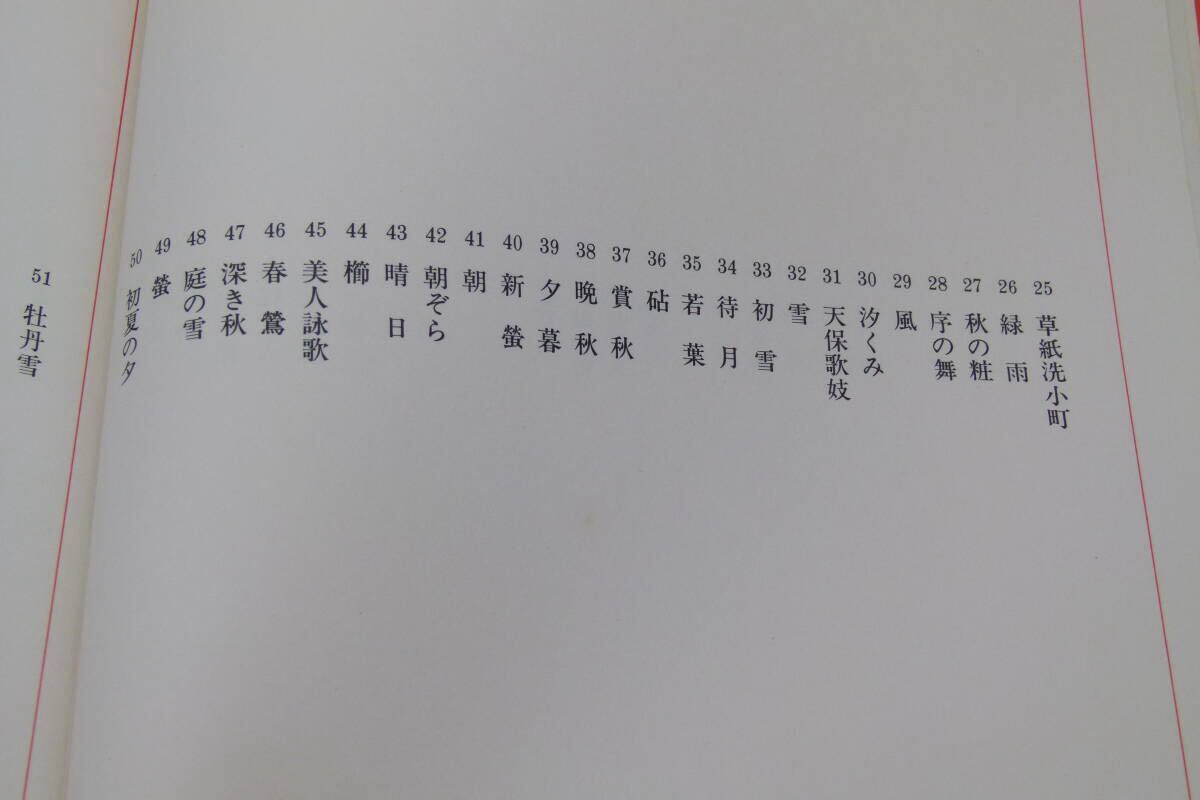 25 草紙洗小町
26 緑雨
27 秋の粧
28 序の舞
29 風
30 汐くみ
31 天保歌妓
32 雪
33 初雪
34 待月
35 若葉
36 砧
37 賞秋
38 晩秋
39 夕暮
40 新螢
41 朝
42 朝ぞら
43 晴日
44 櫛
45 美人詠歌
46 春鶯
47 深き秋
48 庭の雪
49 螢
50 初夏の夕
51 牡丹雪